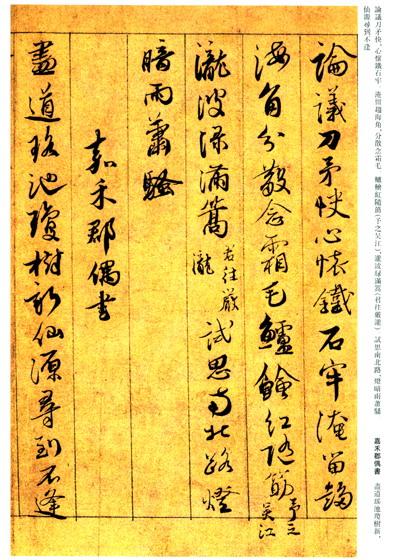 論議刀矛快，心懷鐵石牢　淹留趨海角，分散念霜毛　鱸鱠紅隨筯（予之吳江），瀧波綠滿篙（君往嚴瀧）　試思南北路，燈暗雨蕭騷　嘉禾郡偶書　盡道瑤池瓊樹新，
仙源尋到不逢
論議刀矛快心懷鐵石牢淹留趨
海角分散念霜毛鱸鱠紅隨筯予之吳江
瀧波淥滿篙君往嚴瀧試思南北路燈
暗雨蕭騷
嘉禾郡偶書
盡道瑤池瓊樹新仙源尋到不逢